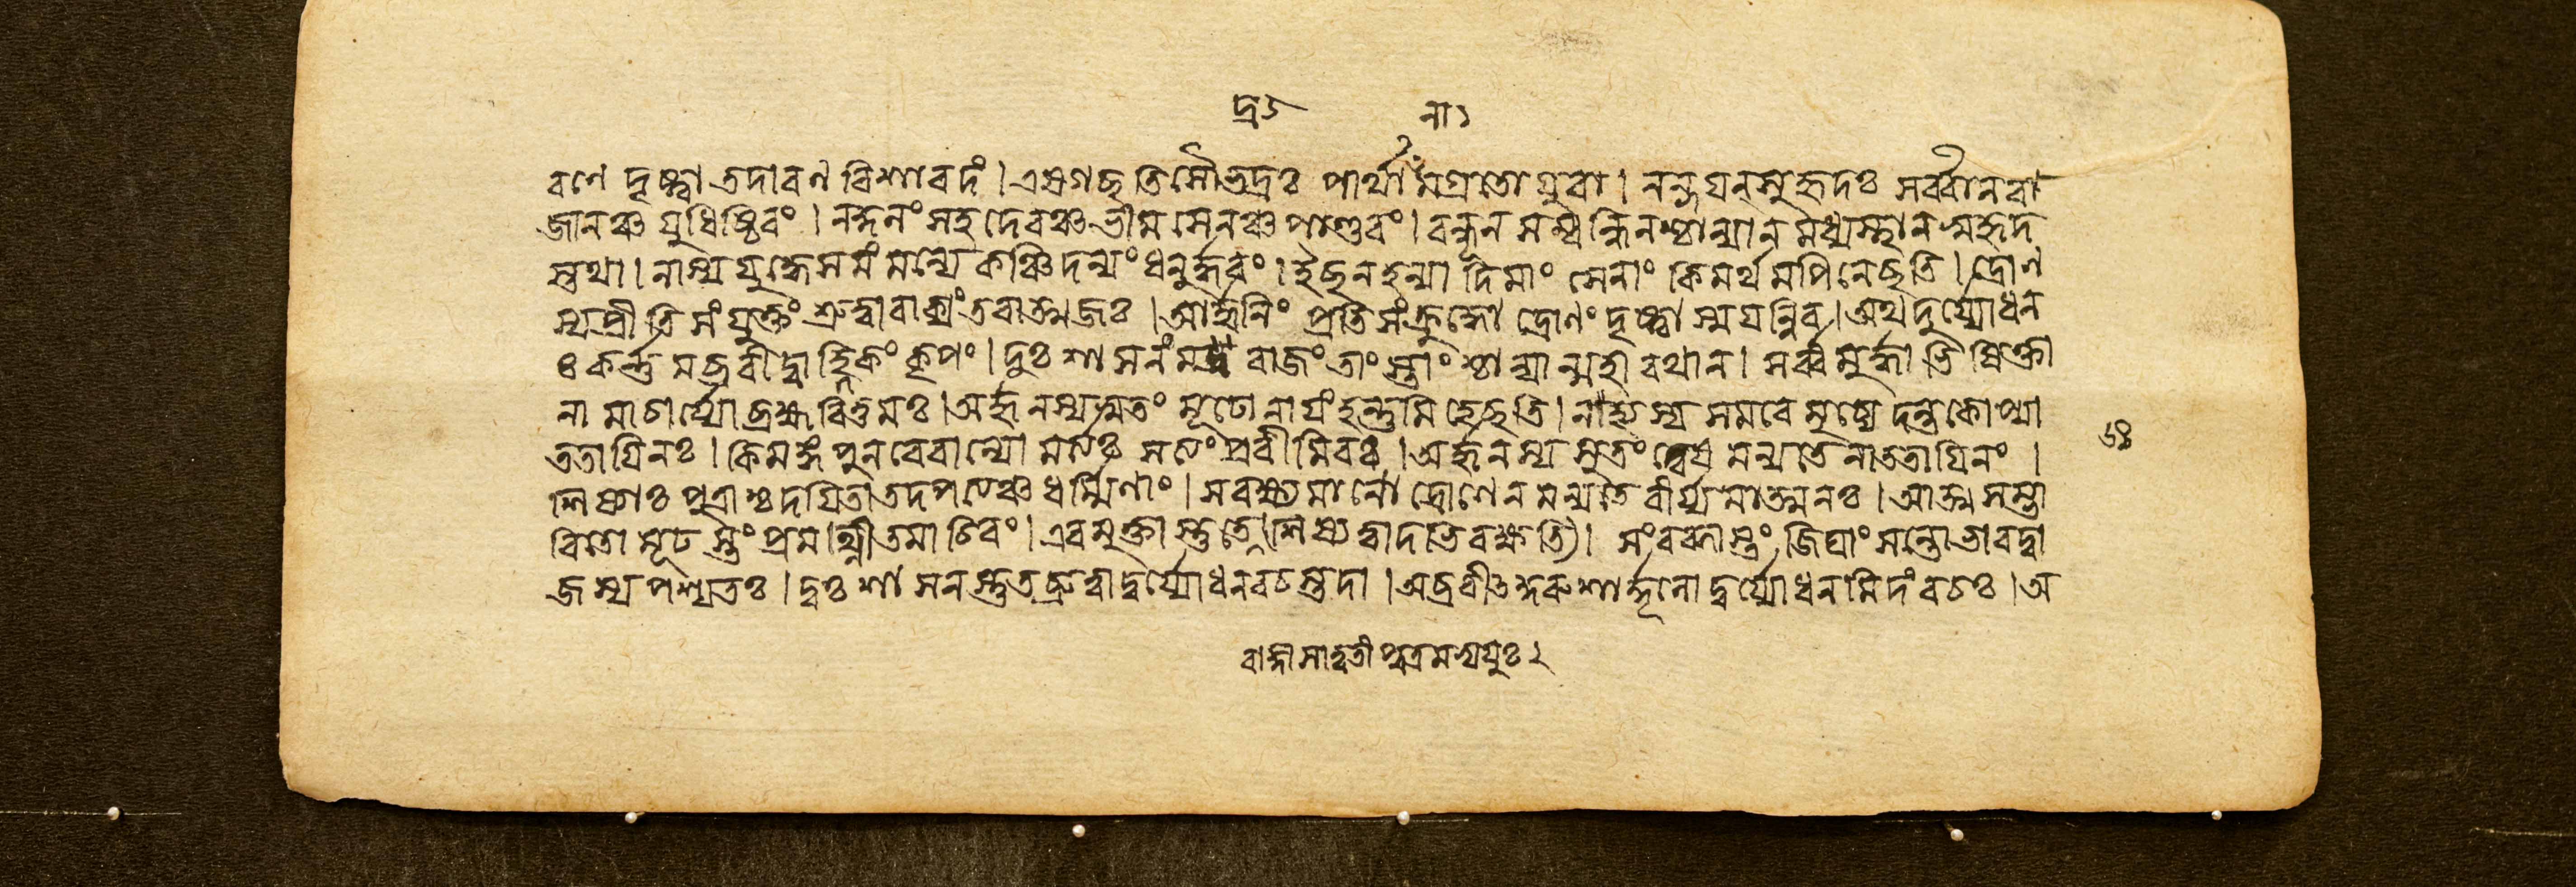 দ্র১ না১
বণে দৃষ্ট্বা তদা বণ বিশাবদং । এষ গছতি সৌভদ্রঃ পার্থানামগ্রতো যুবা । নন্দযন্ সুহৃদঃ সর্ব্বান বা
জানঞ্চ যুধিষ্ঠিবং । নকুলং সহদেবঞ্চ ভীমসেনঞ্চ পাণ্ডবং । বন্ধূন সম্বন্ধিনশ্চান্যান মধ্যস্থান সুহৃদ
স্তথা । নাস্য যুদ্ধে সমং মন্যে কঞ্চিদন্যং ধনুর্দ্ধবং । ইছন হন্যাদিমাং সেনাং কিমর্থমপি নেছতি । দ্রোণ
স্য প্রীতিসংযুক্তং শ্রুত্বা বাক্যং তবাত্মজঃ । আর্জ্জুনিং প্রতি সংক্রুদ্ধো দ্রোণং দৃষ্ট্বা স্ময়ন্নিব । অথ দুর্য্যোধন
ঃ কর্ণমব্রবীদ্বাহ্লিকং কৃপং । দুঃশাসনং মদ্রবাজং তাংস্তাংশ্চান্যান্মহাবথান । সর্ব্বমূর্দ্ধাভিষিক্তা
নামাচার্য্যো ব্রহ্মবিত্তমঃ । অর্জ্জুনস্য সুতং মূঢো নাযং হন্তুমিহেছতি । নাহ্যস্য সমবে মুচ্যেদন্তকোপ্যা
ততাযিনঃ । কিমঙ্গ পুনবেবান্যো মর্ত্যঃ সত্যং ব্রবীমি বঃ । অর্জ্জুনস্য সুতং ত্বেষ মন্যতে নাততাযিনং ।
শিষ্যাঃ পুত্রাশ্চ দযিতাস্তদপত্যঞ্চ ধর্ম্মিণাং । সংবক্ষ্যমাণো দ্রোণেন মন্যতে বীর্য্যমাত্মনঃ । আত্মসম্ভা
বিতো মূঢস্তং প্রমথ্নীত মাচিবং । এবমুক্তাস্তুতে শিষ্যত্বাদভিবক্ষতি । সংবব্ধাস্তং জিঘাংসন্তো ভাবদ্বা
জস্য পশ্যতঃ । দুঃশাসনস্তু তচ্ছ্রুত্বা দুর্য্যোধনবচস্তদা । অব্রবীৎ কুরুশার্দ্দূলো দুর্য্যোধনমিদং বচঃ । অ
৬৪
বাজ্ঞা সাত্বতীপুত্রমভ্যযুঃ ২